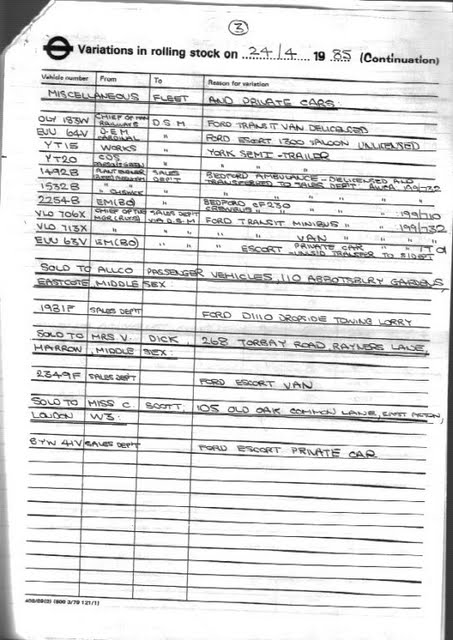 3
Variations in rolling stock on 24/4 1985 (Continuation)
Vehicle number From To Reason for variation
MISCELLANEOUS FLEET AND PRIVATE CARS.
OLY 183W CHIEF OF RAILWAYS D.S.M FORD TRANSIT VAN DELICENCED
EUU 64V D.E.M CARDINAL " FORD ESCORT 1300 SALOON UNLICENSED
YT15 WORKS " YORK SEMI-TRAILER
YT20 COS " " "
1492B SALES DEP'T BEDFORD AMBULANCE - DELICENSED AND TRANSFERRED TO SALES DEPT. 199/732
1532B " CHISWICK " " " "
2254B EM(BO) " BEDFORD CF230 " 199/710
VLO 706X CHIEF OF SALES DEPT VIA D.S.M FORD TRANSIT MINIBUS "
VLO 713X " " " " VAN " " 199/732
EUU 63V EM(BO) " " " ESCORT PRIVATE CAR " 170
TRANSFER TO S/DEPT
SOLD TO ALLCO PASSENGER VEHICLES, 110 ABBOTSBURY GARDENS,
EASTCOTE, MIDDLESEX.
1981F SALES DEPT FORD D1110 DROPSIDE TOWING LORRY
SOLD TO MRS V. DICK, 268 TORBAY ROAD, RAYNERS LANE,
HARROW, MIDDLESEX.
2349F SALES DEPT FORD ESCORT VAN
SOLD TO MISS C. SCOTT, 105 OLD OAK COMMON LANE, EAST ACTON,
LONDON W3.
BYW 41V SALES DEPT FORD ESCORT PRIVATE CAR.
(800 3/79 121/1)